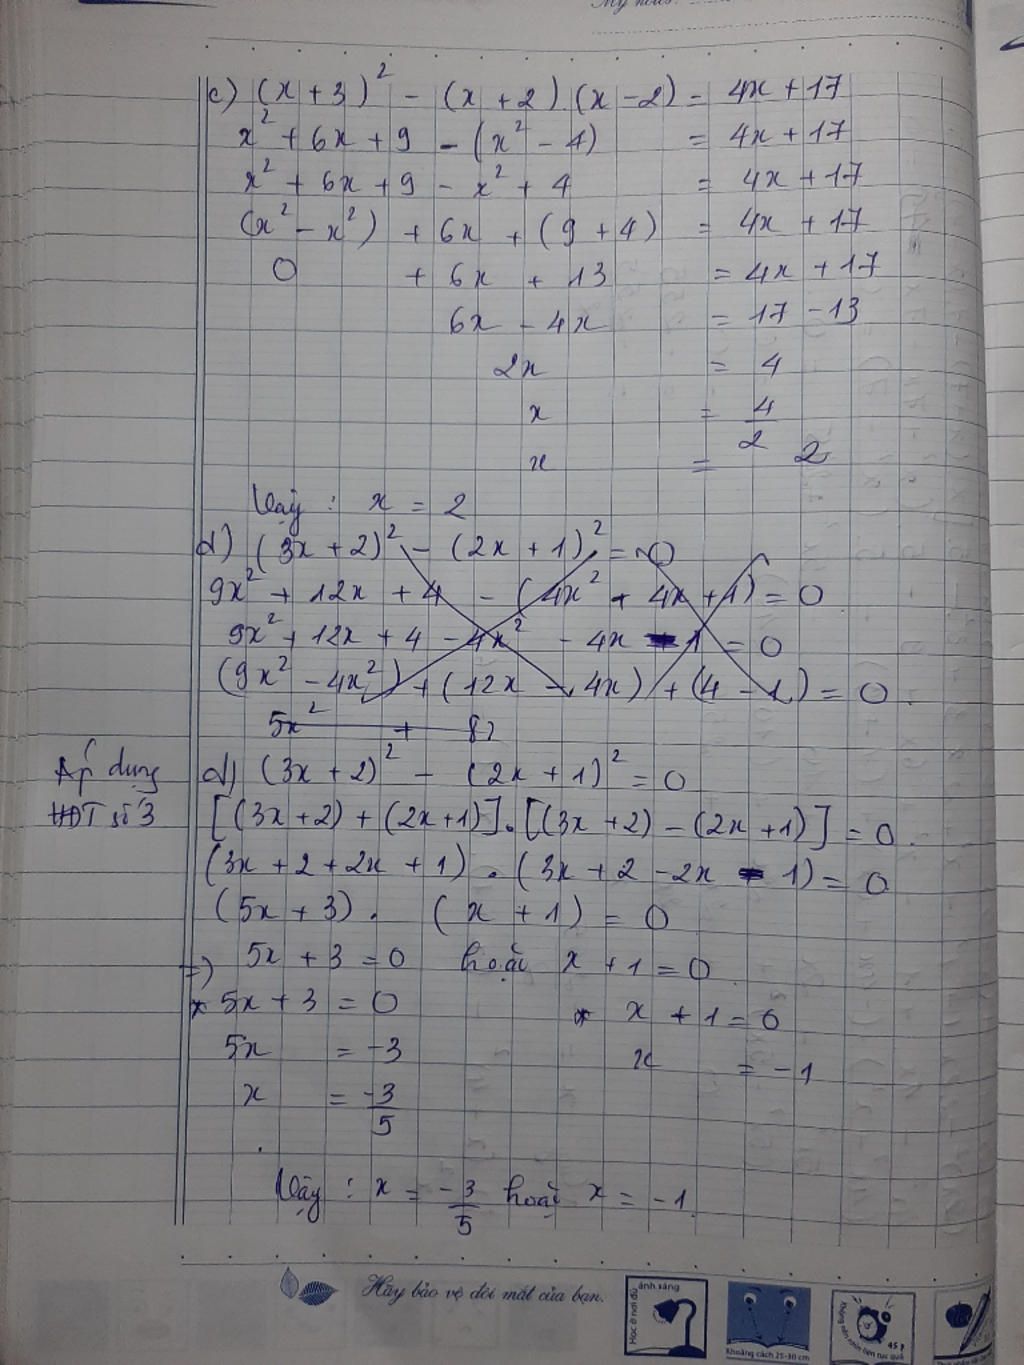 My notes:
c) (x + 3)² - (x + 2) (x - 2) = 4x + 17
x² + 6x + 9 - (x² - 4) = 4x + 17
x² + 6x + 9 - x² + 4 = 4x + 17
(x² - x²) + 6x + (9 + 4) = 4x + 17
0 + 6x + 13 = 4x + 17
6x - 4x = 17 - 13
2x = 4
x = 4/2
x = 2
Vậy : x = 2
d) (3x + 2)² - (2x + 1)² = 0
9x² + 12x + 4 - (4x² + 4x + 1) = 0
9x² + 12x + 4 - 4x² - 4x - 1 = 0
(9x² - 4x²) + (12x - 4x) + (4 - 1) = 0.
5x² + 8
Áp dụng
HĐT số 3
d) (3x + 2)² - (2x + 1)² = 0
[(3x + 2) + (2x + 1)] . [(3x + 2) - (2x + 1)] = 0.
(3x + 2 + 2x + 1) . (3x + 2 - 2x - 1) = 0
(5x + 3) . (x + 1) = 0
=) 5x + 3 = 0 hoặc x + 1 = 0
* 5x + 3 = 0 * x + 1 = 0
5x = -3 x = -1
x = -3/5
Vậy : x = -3/5 hoặc x = -1.
Hãy bảo vệ đôi mắt của bạn.
Học ở nơi đủ ánh sáng
Khoảng cách 25-30 cm
45 p